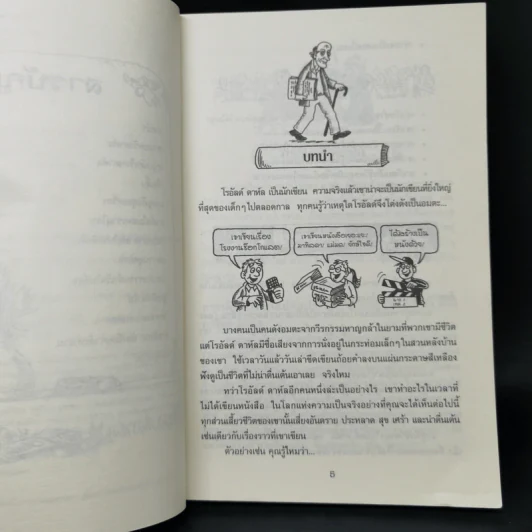 สารบัญ
บทนำ
โรอัลด์ ดาห์ล เป็นนักเขียน ความจริงแล้วเขาน่าจะเป็นนักเขียนที่ยิ่งใหญ่
ที่สุดของเด็กๆ ไปตลอดกาล ทุกคนรู้ว่าเหตุใดโรอัลด์จึงโด่งดังเป็นอมตะ...
เขาเขียนเรื่อง
โรงงานช็อกโกแลต!
เขาเขียนหนังสือ
มาทิลดา! แม่มด! ยักษ์ใจดี!
ได้สร้างเป็น
หนังด้วย!
บางคนเป็นคนดังอมตะจากวีรกรรมหาญกล้าในยามที่พวกเขามีชีวิต
แต่โรอัลด์ ดาห์ลมีชื่อเสียงจากการนั่งอยู่ในกระท่อมเล็กๆ ในสวนหลังบ้าน
ของเขา ใช้เวลาวันแล้ววันเล่าขีดเขียนถ้อยคำลงบนแผ่นกระดาษสีเหลือง
ฟังดูเป็นชีวิตที่ไม่น่าตื่นเต้นเอาเลย จริงไหม
ทว่าโรอัลด์ ดาห์ลอีกคนหนึ่งล่ะเป็นอย่างไร เขาทำอะไรในเวลาที่
ไม่ได้เขียนหนังสือ ในโลกแห่งความเป็นจริงอย่างที่คุณจะได้เห็นต่อไปนี้
ทุกส่วนเสี้ยวชีวิตของเขานั้นเสี่ยงอันตราย ประหลาด สุข เศร้า และน่าตื่นเต้น
เช่นเดียวกับเรื่องราวที่เขาเขียน
ตัวอย่างเช่น คุณรู้ไหมว่า...
5